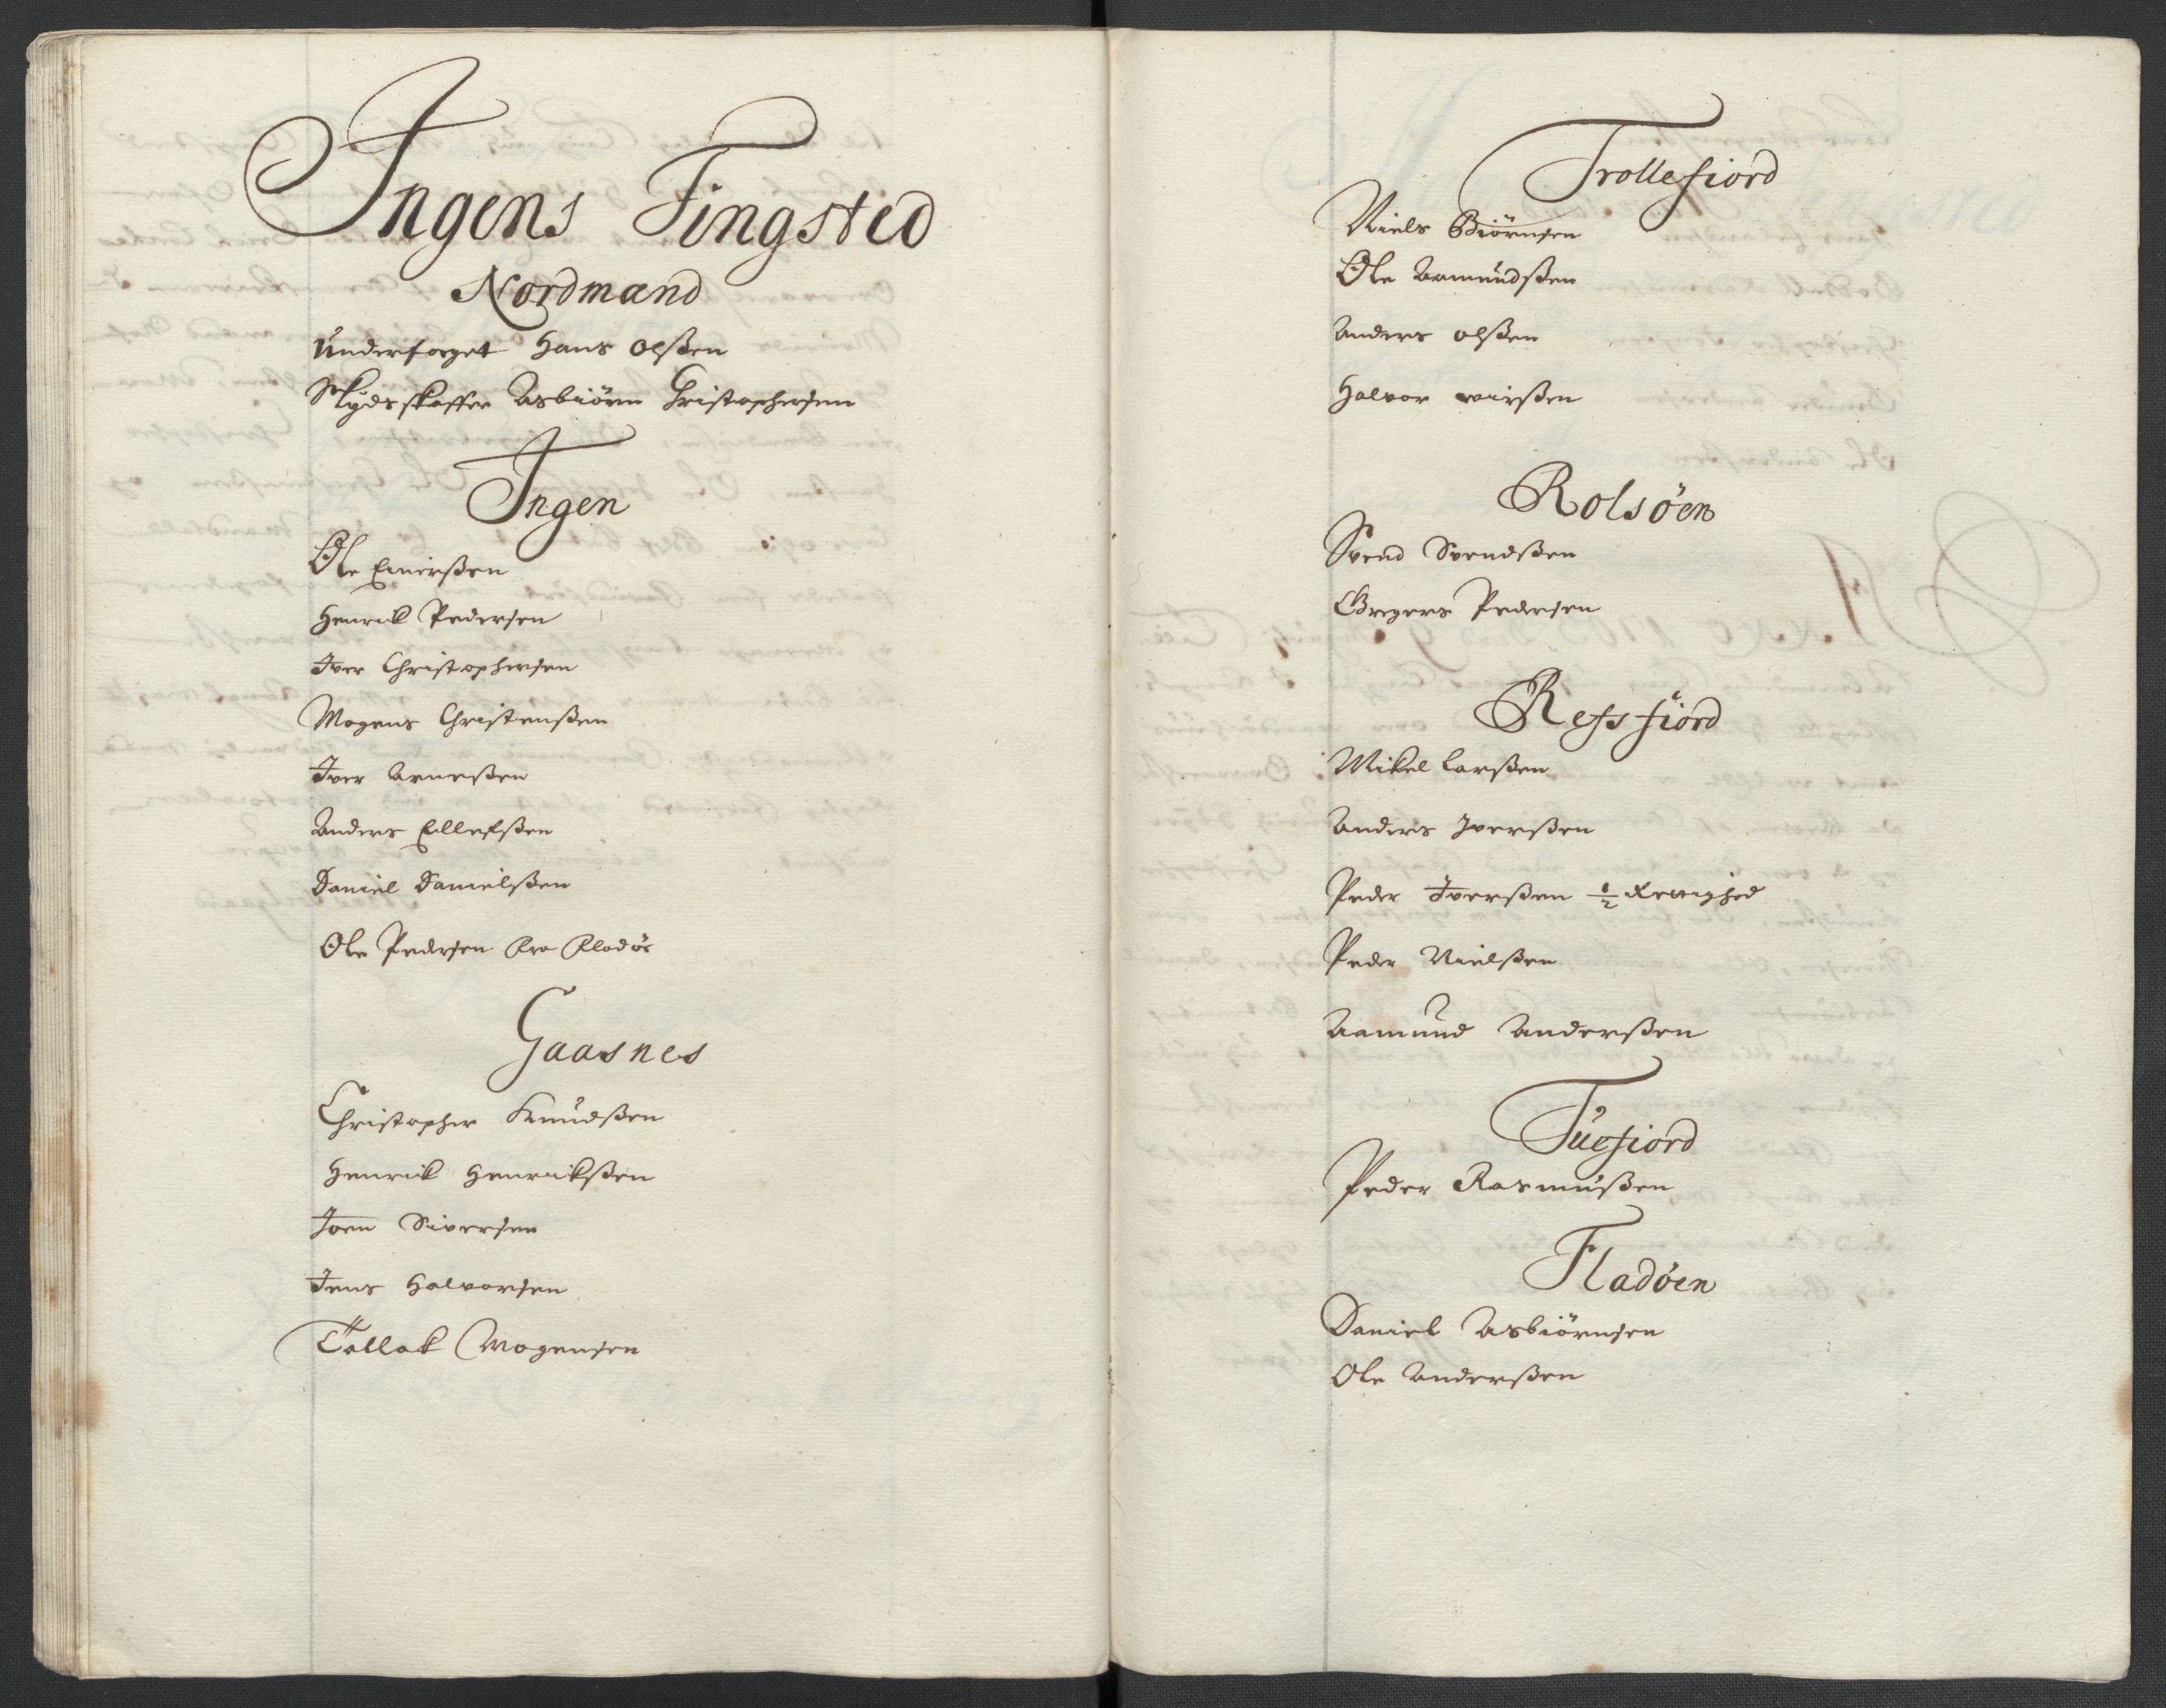 Ingens Tingsted
Nordmænd
Underfoget Hans Olßen
Skydsskaffer Asbiörn Christophersen
Ingen
Ole Einerßen
Henrik Pedersen
Iver Christophersen
Mogens Christenßen
Iver Arneßen
Anders Ellefßen
Daniel Danielßen
Ole Pedersen fra Fladöe
Gaasnes
Christopher Knudßen
Henrik Henrikßen
Joen Siversen
Jens Halvorsen
Tollak Mogensen
Trollefiord
Niels Biörnsen
Ole Aamundßen
Anders Olßen
Halvor
Rolsöen
Svend Svendßen
Gregers Pedersen
Refsfiord
Mikel Larßen
Anders Iverßen
Peder Iverßen ½ Rettighed
Peder Nielßen
Aamund Anderßen
Tuefiord
Peder Rasmußen
Fladöen
Daniel Asbiörnsen
Ole Anderßen